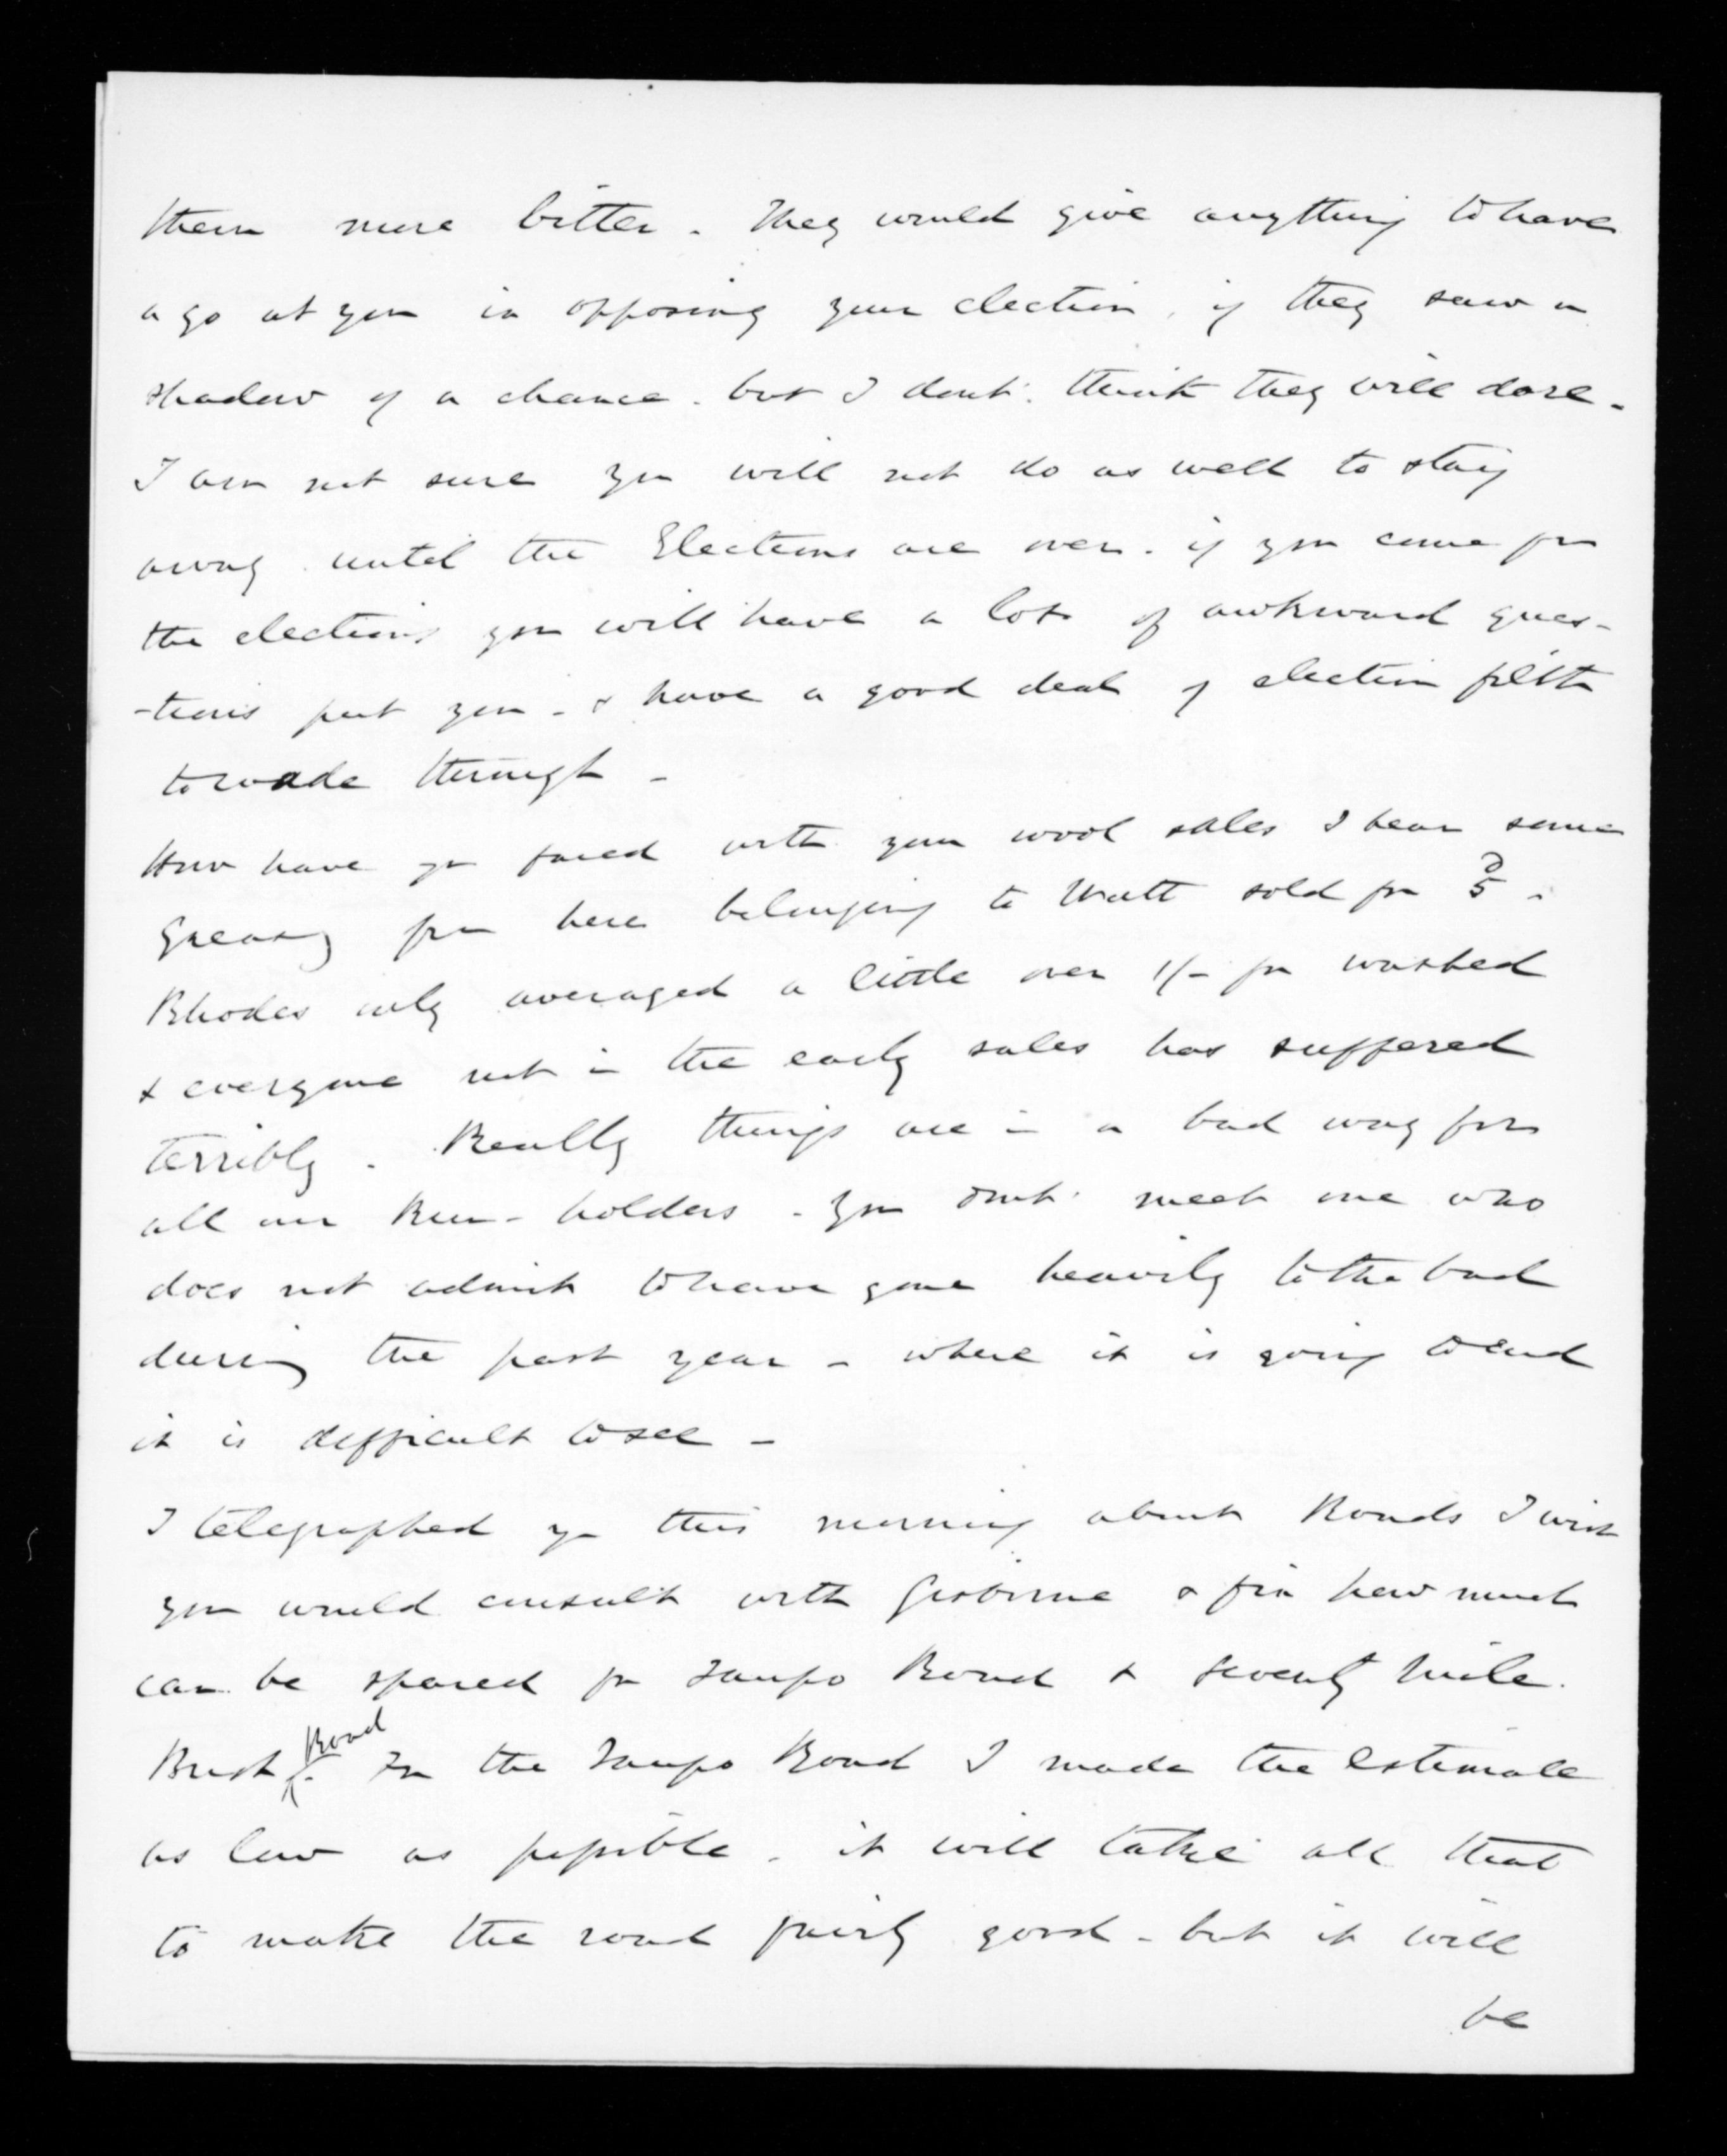 them more bitter. They would give anything to have
a go at you in opposing your election, if they saw a
shadow of a chance. but I dont think they will dare.
I am not sure you will not do as well to stay
away until the Elections are over. if you come for
the elections you will have a lot of awkward ques-
-tions put you - & have a good deal of election filth
to wade through -
How have yr fared with your wool sales I hear some
Greasy from here belonging to Watt sold for 5d -
Rhodes only averaged a little over 1/- for washed
& everyone not in the early sales has suffered
terribly. Really things are in a bad way for
all our Run-holders - You dont meet one who
does not admit to have gone heavily to the bad
during the past year - where it is going to end
it is difficult to see -
I telegraphed yr this morning about Roads I wish
you would consult with Gisborne & fix how much
can be spared for Taupo Road & Seventy Mile
Bush Road. For the Taupo Road I made the estimate
as low as possible. it will take all that
to make the road fairly good - but it will
be